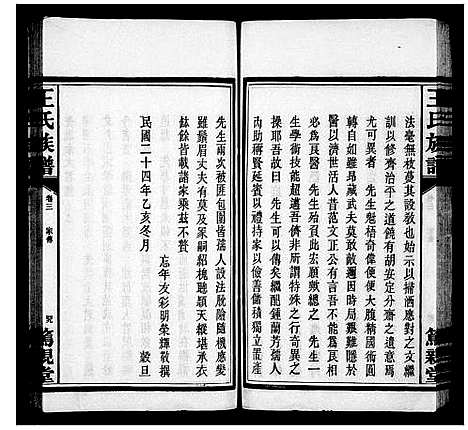 王氏族譜
法毫無枝蔓其設敎也始示以掃洒應對之文繼
訓以修齊治平之道饒有胡安定分齋之遺意
尤可異者 先生魁梧奇偉便便大腹精國術而
轉自如雖昂藏武夫莫敢敵邇因時局艱難隱於
醫以濟世活人昔范文正公有言吾不能爲良相
必爲良醫 先生其此宏願歟總之 先生一
生學術技能超邁吾儕非所謂特殊之行奇異之
操耶吾故曰 先生可以傳矣繼配鍾蘭芳孺人
內助蔣賢延賓以禮持家以儉善儲積獨立置產
篤親堂
先生兩次被匪包圍皆孺人設法脫險隨機應變
雖鬚眉丈夫有莫及焉冢嗣紹槐聰穎天縱堪承衣
鉢餘皆載諸家乘茲不贅
民國二十四年乙亥冬月
忘年友彩明榮輝敬撰 穀旦
王氏族譜
卷三 家傳
篤親堂